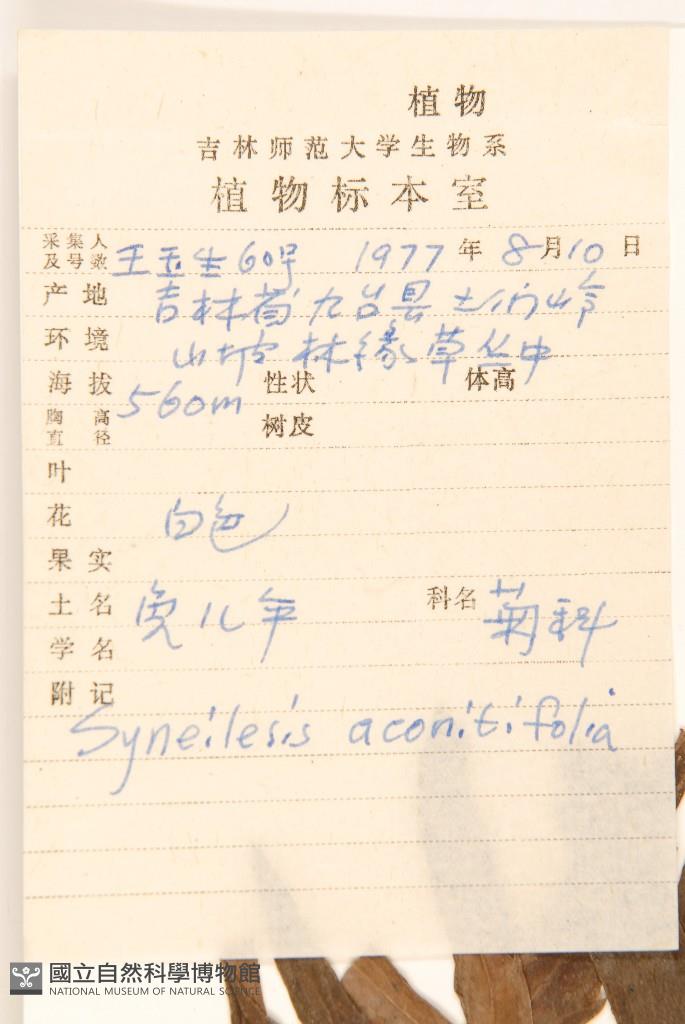 植物
吉林师范大学生物系
植物标本室
采集人及号数 王玉生 60号 1977年8月10日
产地 吉林省九台县土们岭
环境 山坡林缘草丛中
海拔 560m 性状 体高
胸高直径 树皮
叶
花 白色
果实
土名 兔儿伞 科名 菊科
学名
附记
Syneilesis aconitifolia
國立自然科學博物館
NATIONAL MUSEUM OF NATURAL SCIENCE